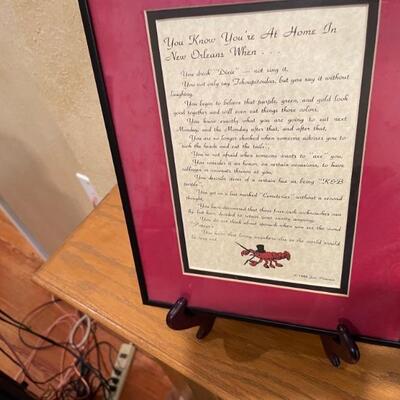 You Know You're At Home In
New Orleans When . . .
You drink "Dixie" — not sing it.
You not only say Tchoupitoulas, but you say it without
laughing.
You begin to believe that purple, green, and gold look
good together and will even eat things those colors.
You know exactly what you are going to eat next
Monday and the Monday after that, and after that.
You are no longer shocked when someone advises you to
"suck the heads and eat the tails".
You're not afraid when someone wants to "axe" you.
You consider it an honor, on certain occasions, to have
colleagues in animals thrown at you.
You describe items of a certain hue as being "K&B
purple".
You get on a bus marked "Cemeteries" without a second
thought.
You have discovered that three-five-inch cockroaches can
fly but have decided to
You do not think about stomach when you see the word
"Tums".
You know that living anywhere else in the world would
be
© 1988